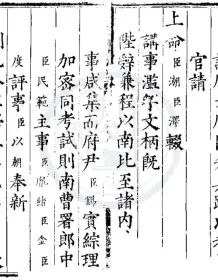 官請
上命臣潮臣澤輟
講事濫竽文柄既
陛辭兼程以南比至諸内
事咸集而府尹臣實綜理
加密同考試則南曹署郎中
臣民範主事臣緒臣金臣
度評事臣以朝奉新